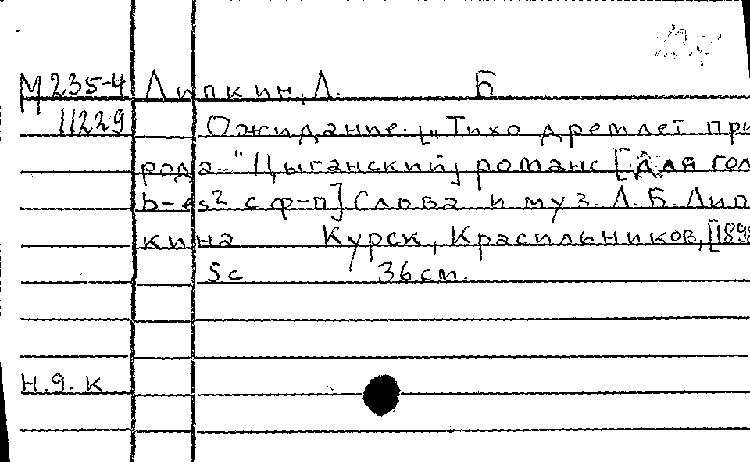 М 235-4 Липкин, Л. Б
11229 Ожидание. „Тихо дремлет при
рода.." Цыганский романс [Для гол
b-es² с ф-п] Слова и муз. Л. Б. Лип
кина Курск, Красильников, [189
5с 36 см.
Н. Я. К